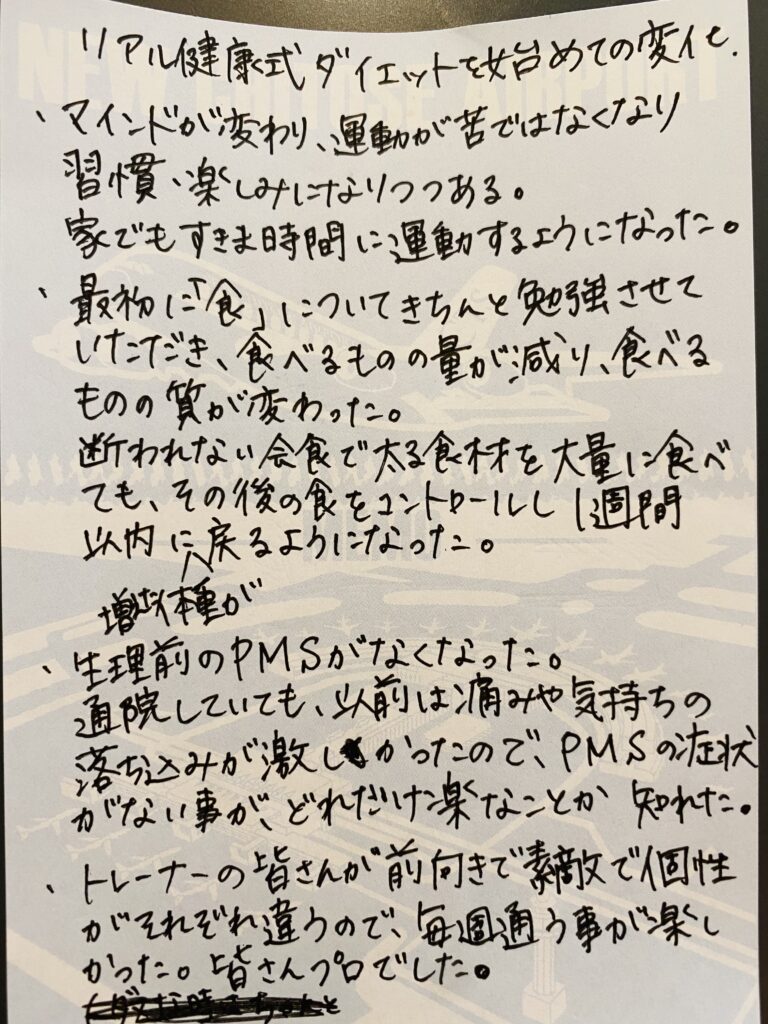 NEW CHITOSE AIRPORT
リアル健康式ダイエットを始めての変化.
、マインドが変わり、運動が苦ではなくなり
習慣・楽しみになりつつある。
家でもすきま時間に運動するようになった。
、最初に「食」についてきちんと勉強させて
いただき、食べるものの量が減り、食べる
ものの質が変わった。
断われない会食で太る食材を大量に食べ
ても、その後の食をコントロールし1週間
以内に戻るようになった。
体重が
、生理前のPMSがなくなった。
通院していても、以前は痛みや気持ちの
落ち込みが激しかったので、PMSの症状
がない事が、どれだけ楽なことか 知れた。
、トレーナーの皆さんが前向きで素敵で個性
がそれぞれ違うので、毎週通う事が楽し
かった。皆さんプロでした。